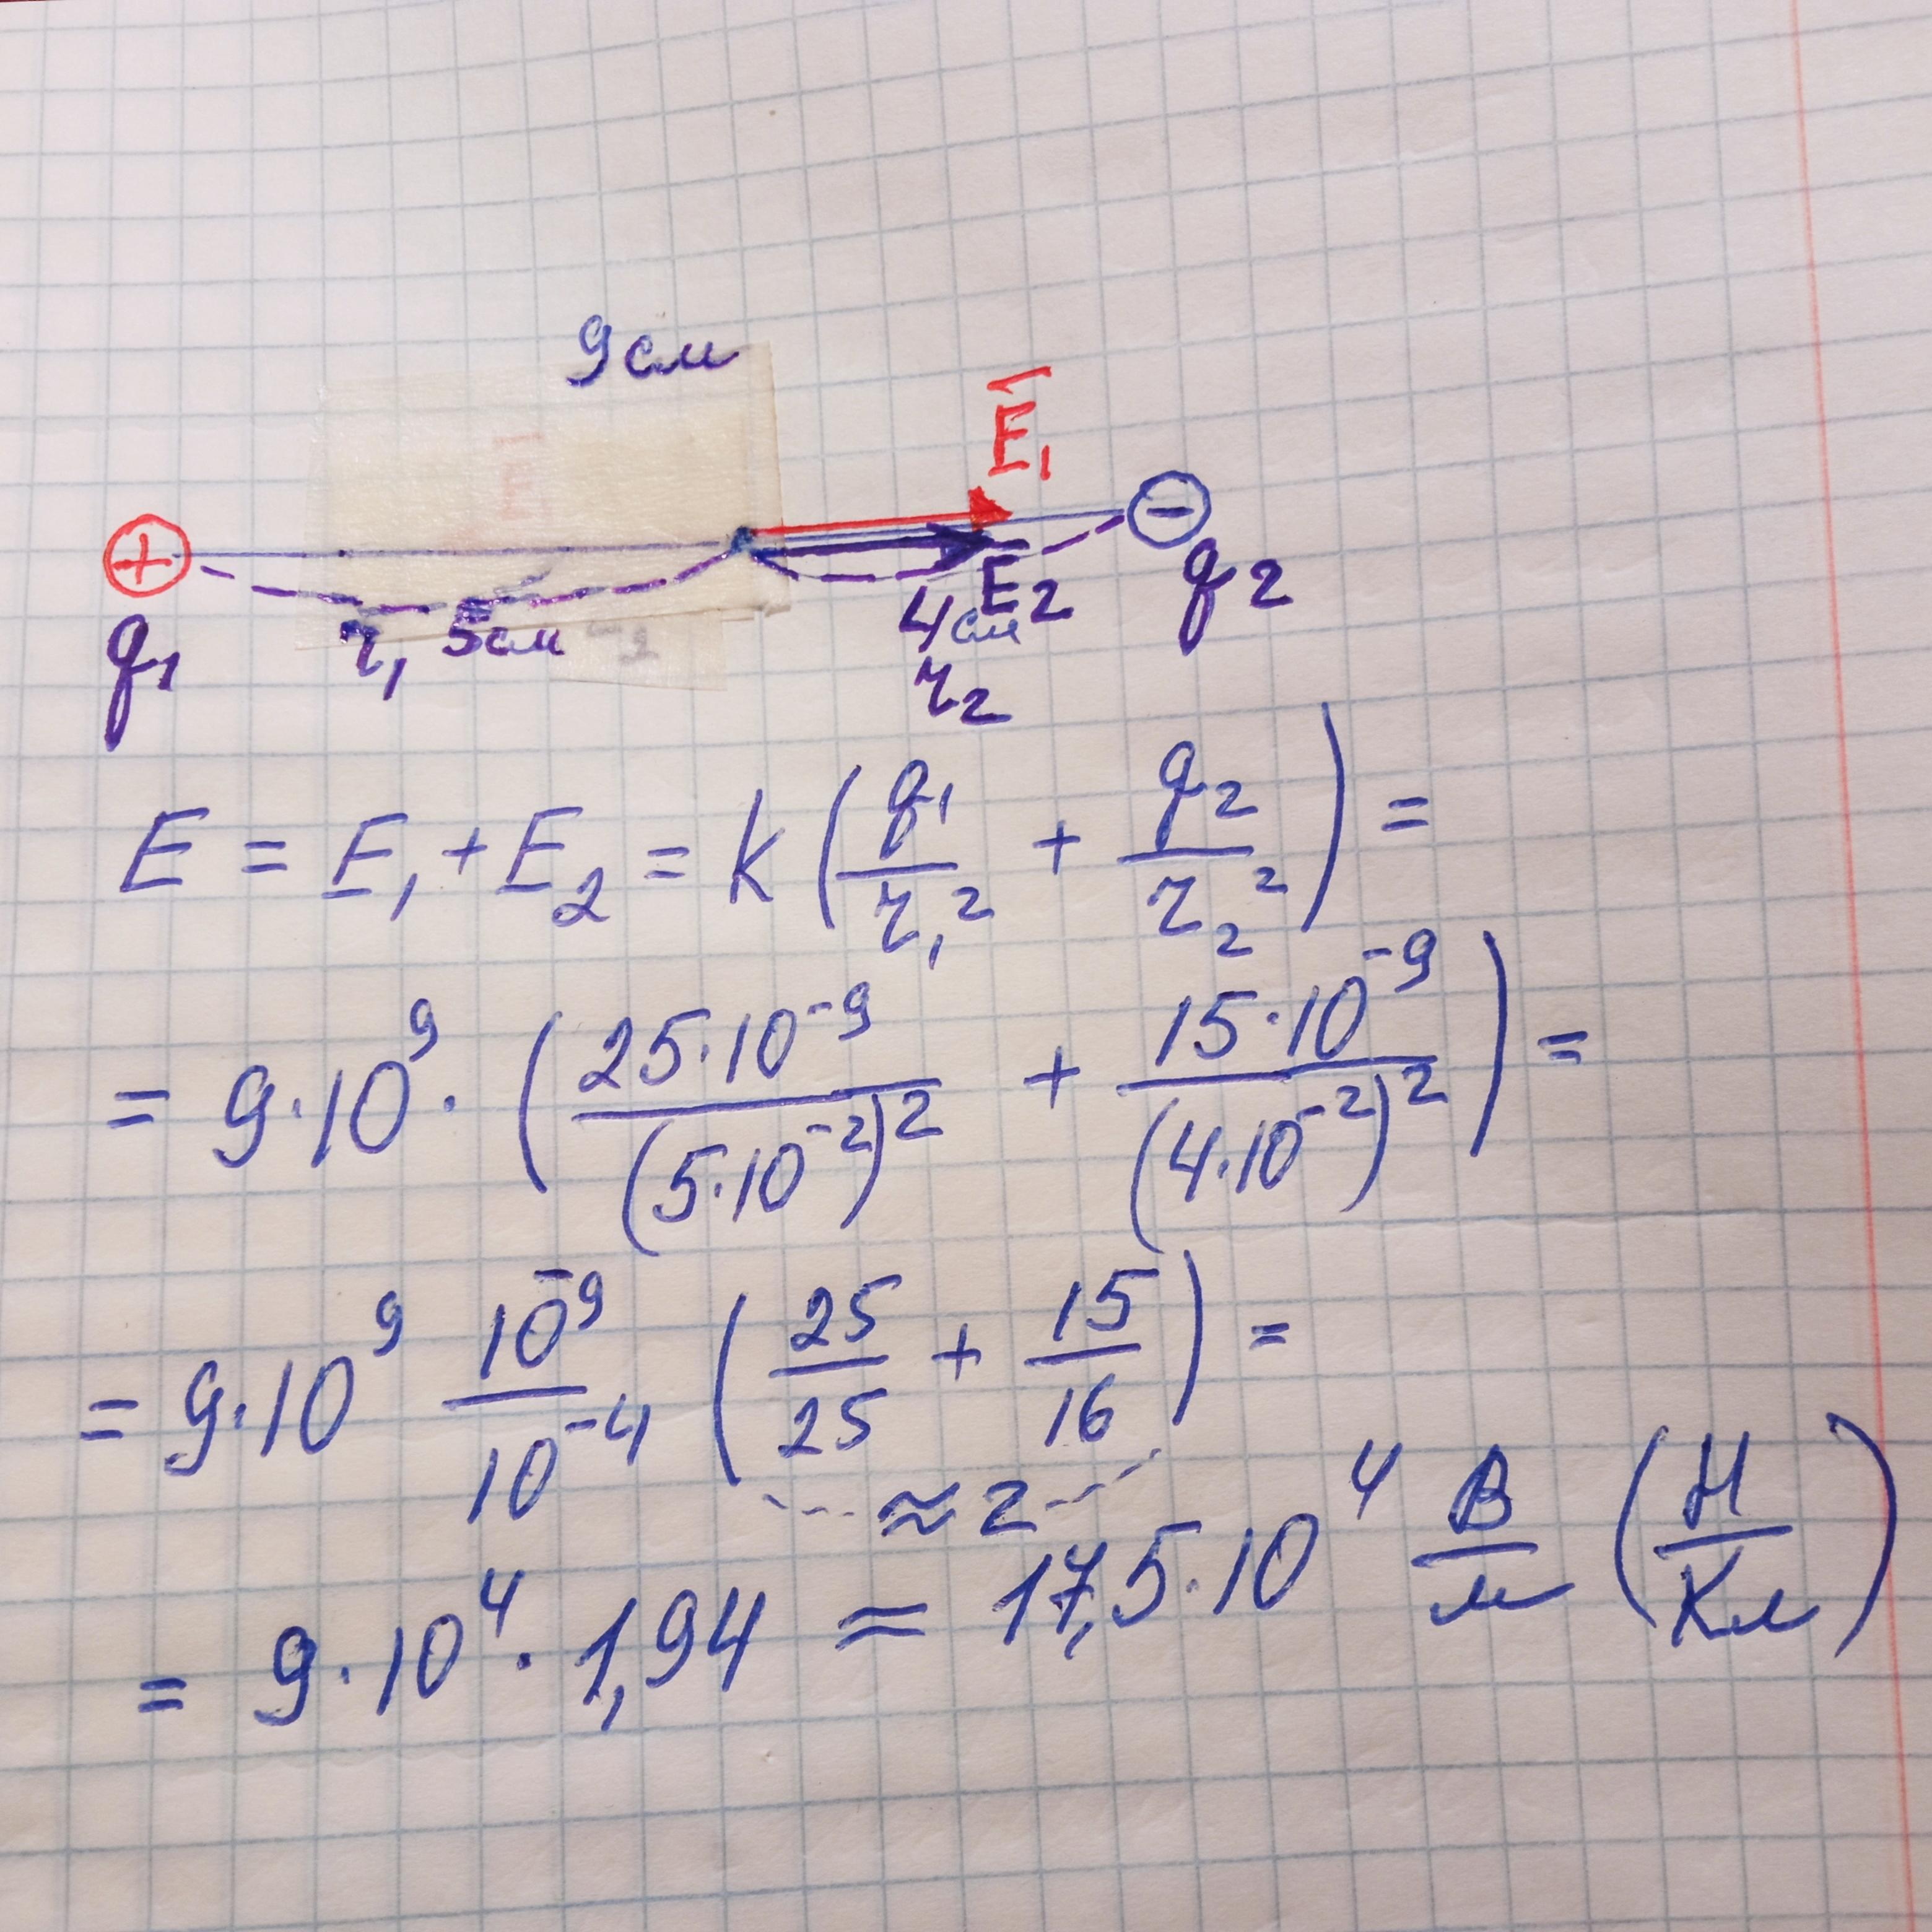 9см
E₁
+ −
q₁ r₁ 5см 4см E₂ q₂
r₂
E = E₁ + E₂ = k (q₁/r₁² + q₂/r₂²) =
= 9·10⁹ · (25·10⁻⁹/(5·10⁻²)² + 15·10⁻⁹/(4·10⁻²)²) =
= 9·10⁹ 10⁻⁹/10⁻⁴ (25/25 + 15/16) =
≈ 2
= 9·10⁴ · 1,94 ≈ 17,5·10⁴ В/м (Н/Кл)